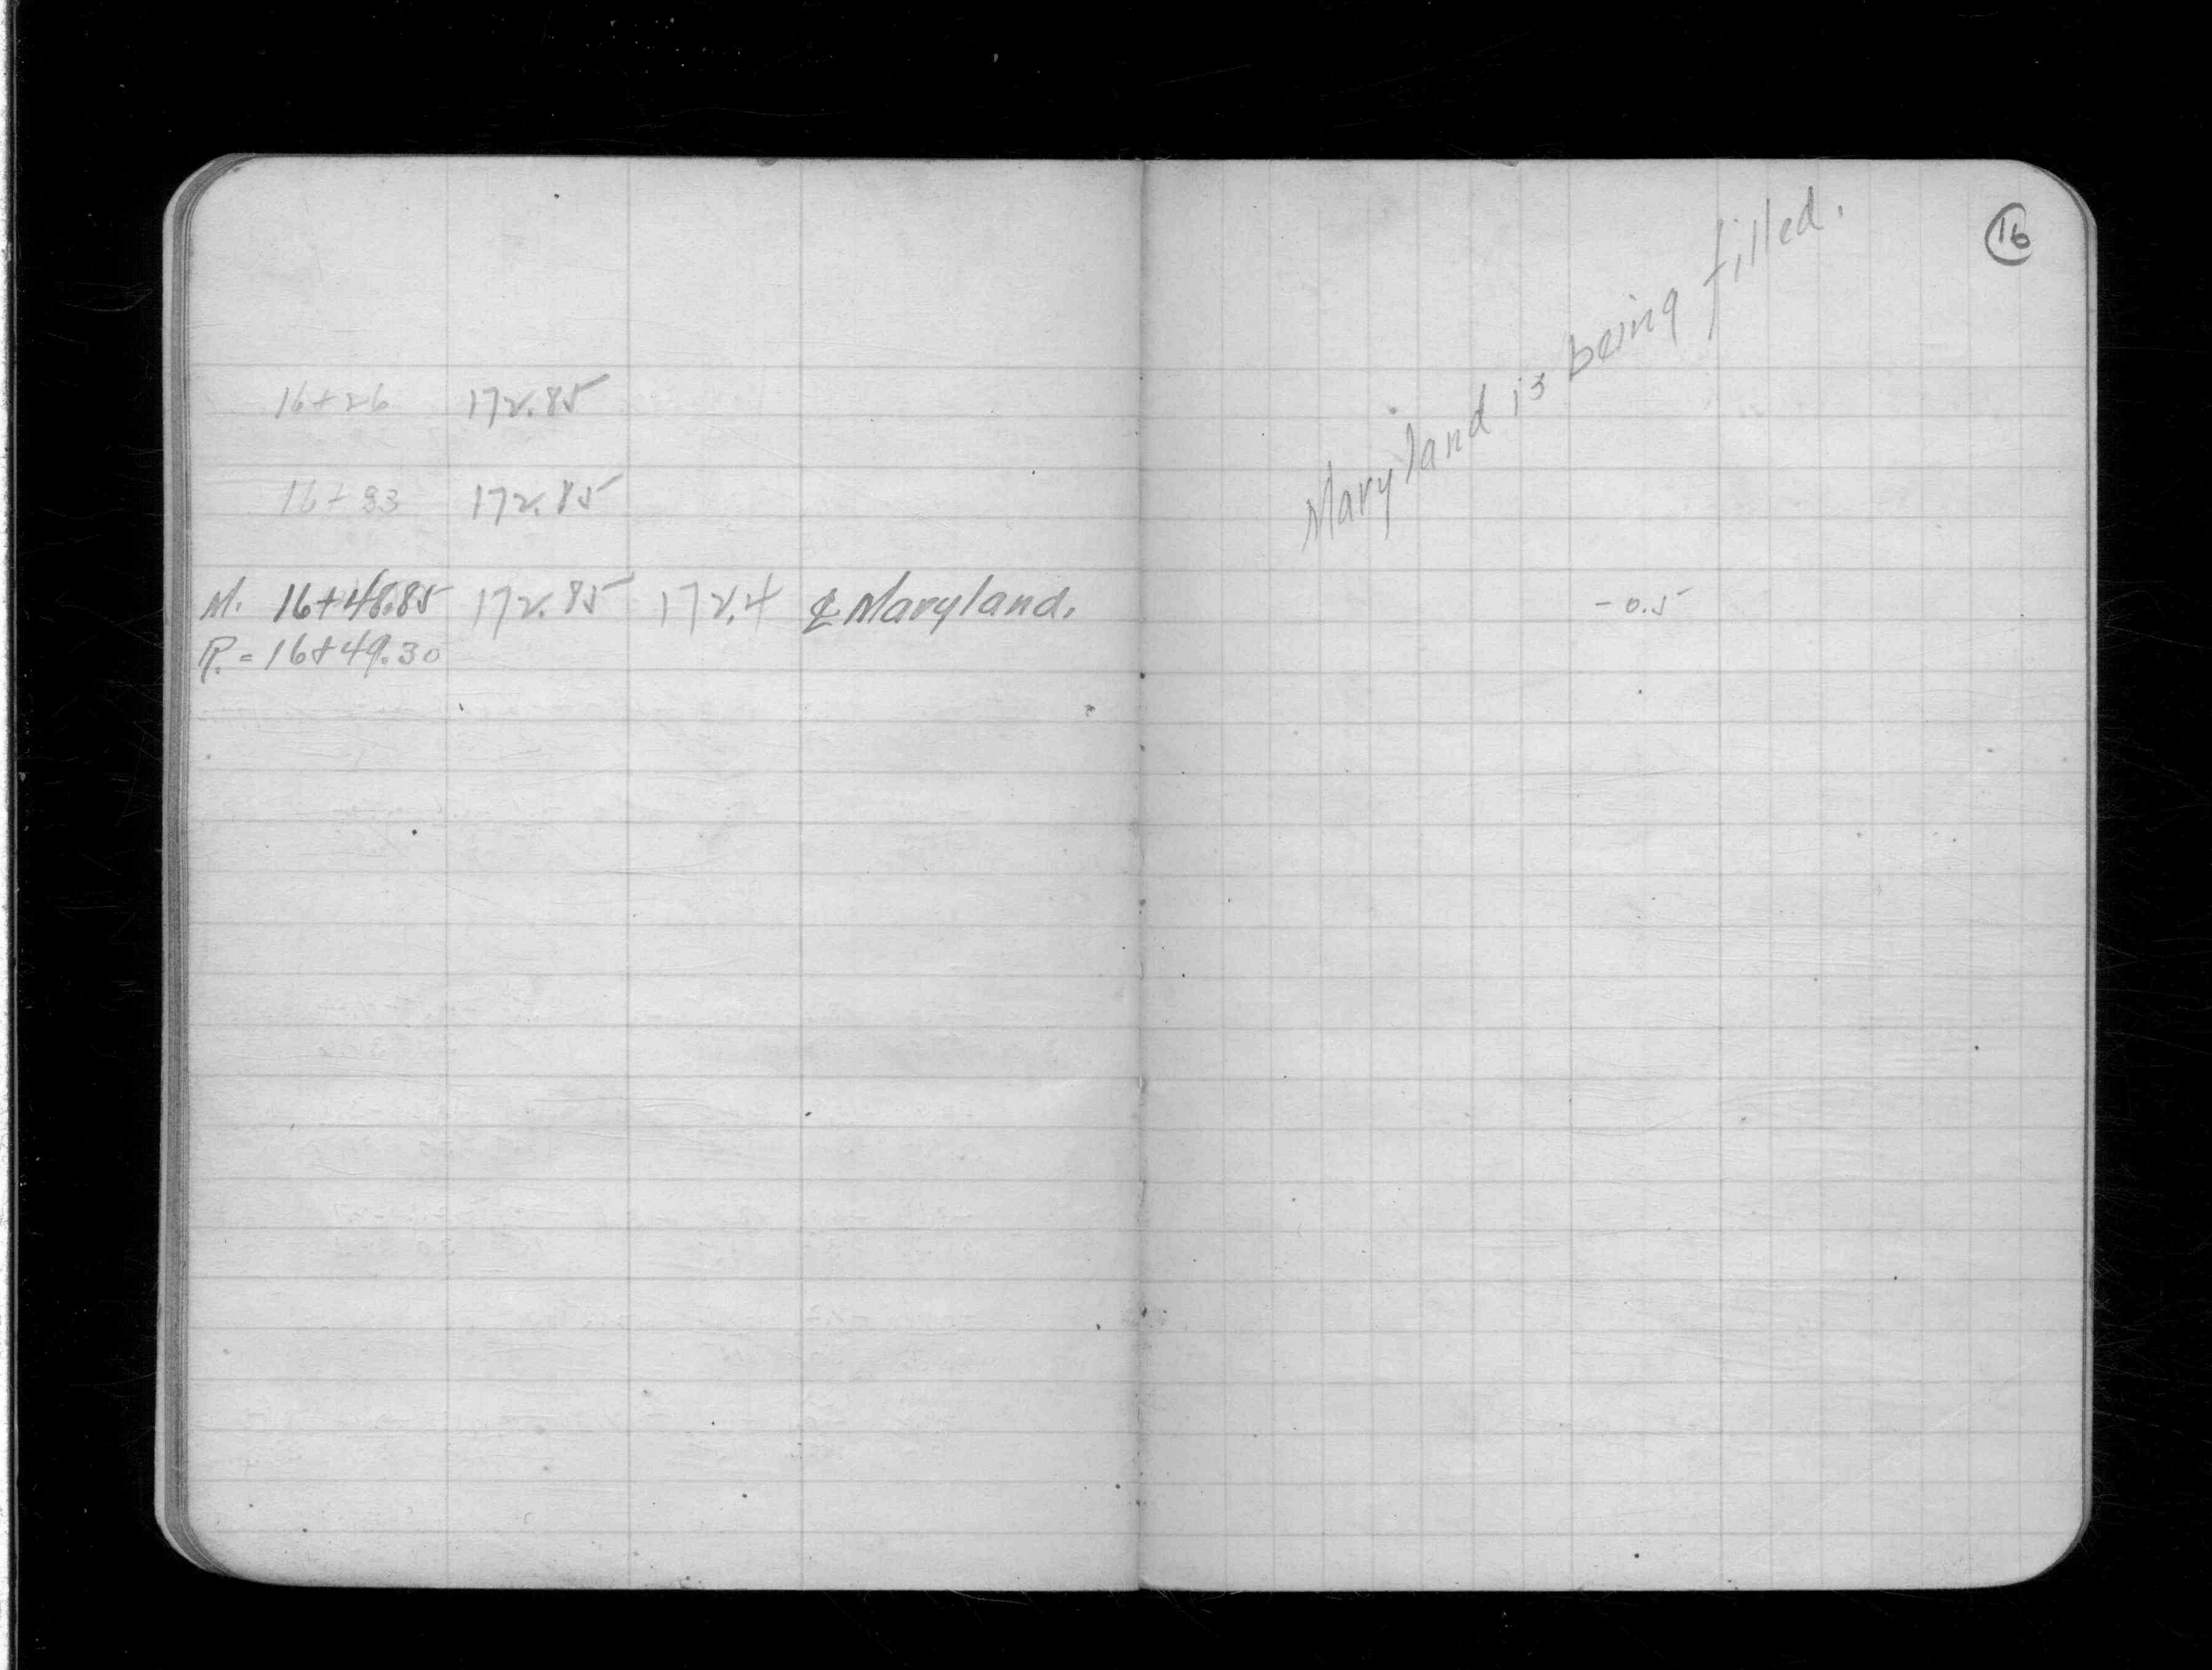 16+26 172.85
16+33 172.85
M. 16+48.85 172.85 172.4 ℄ Maryland.
P. = 16+49.30
16
Maryland is being filled.
-0.5